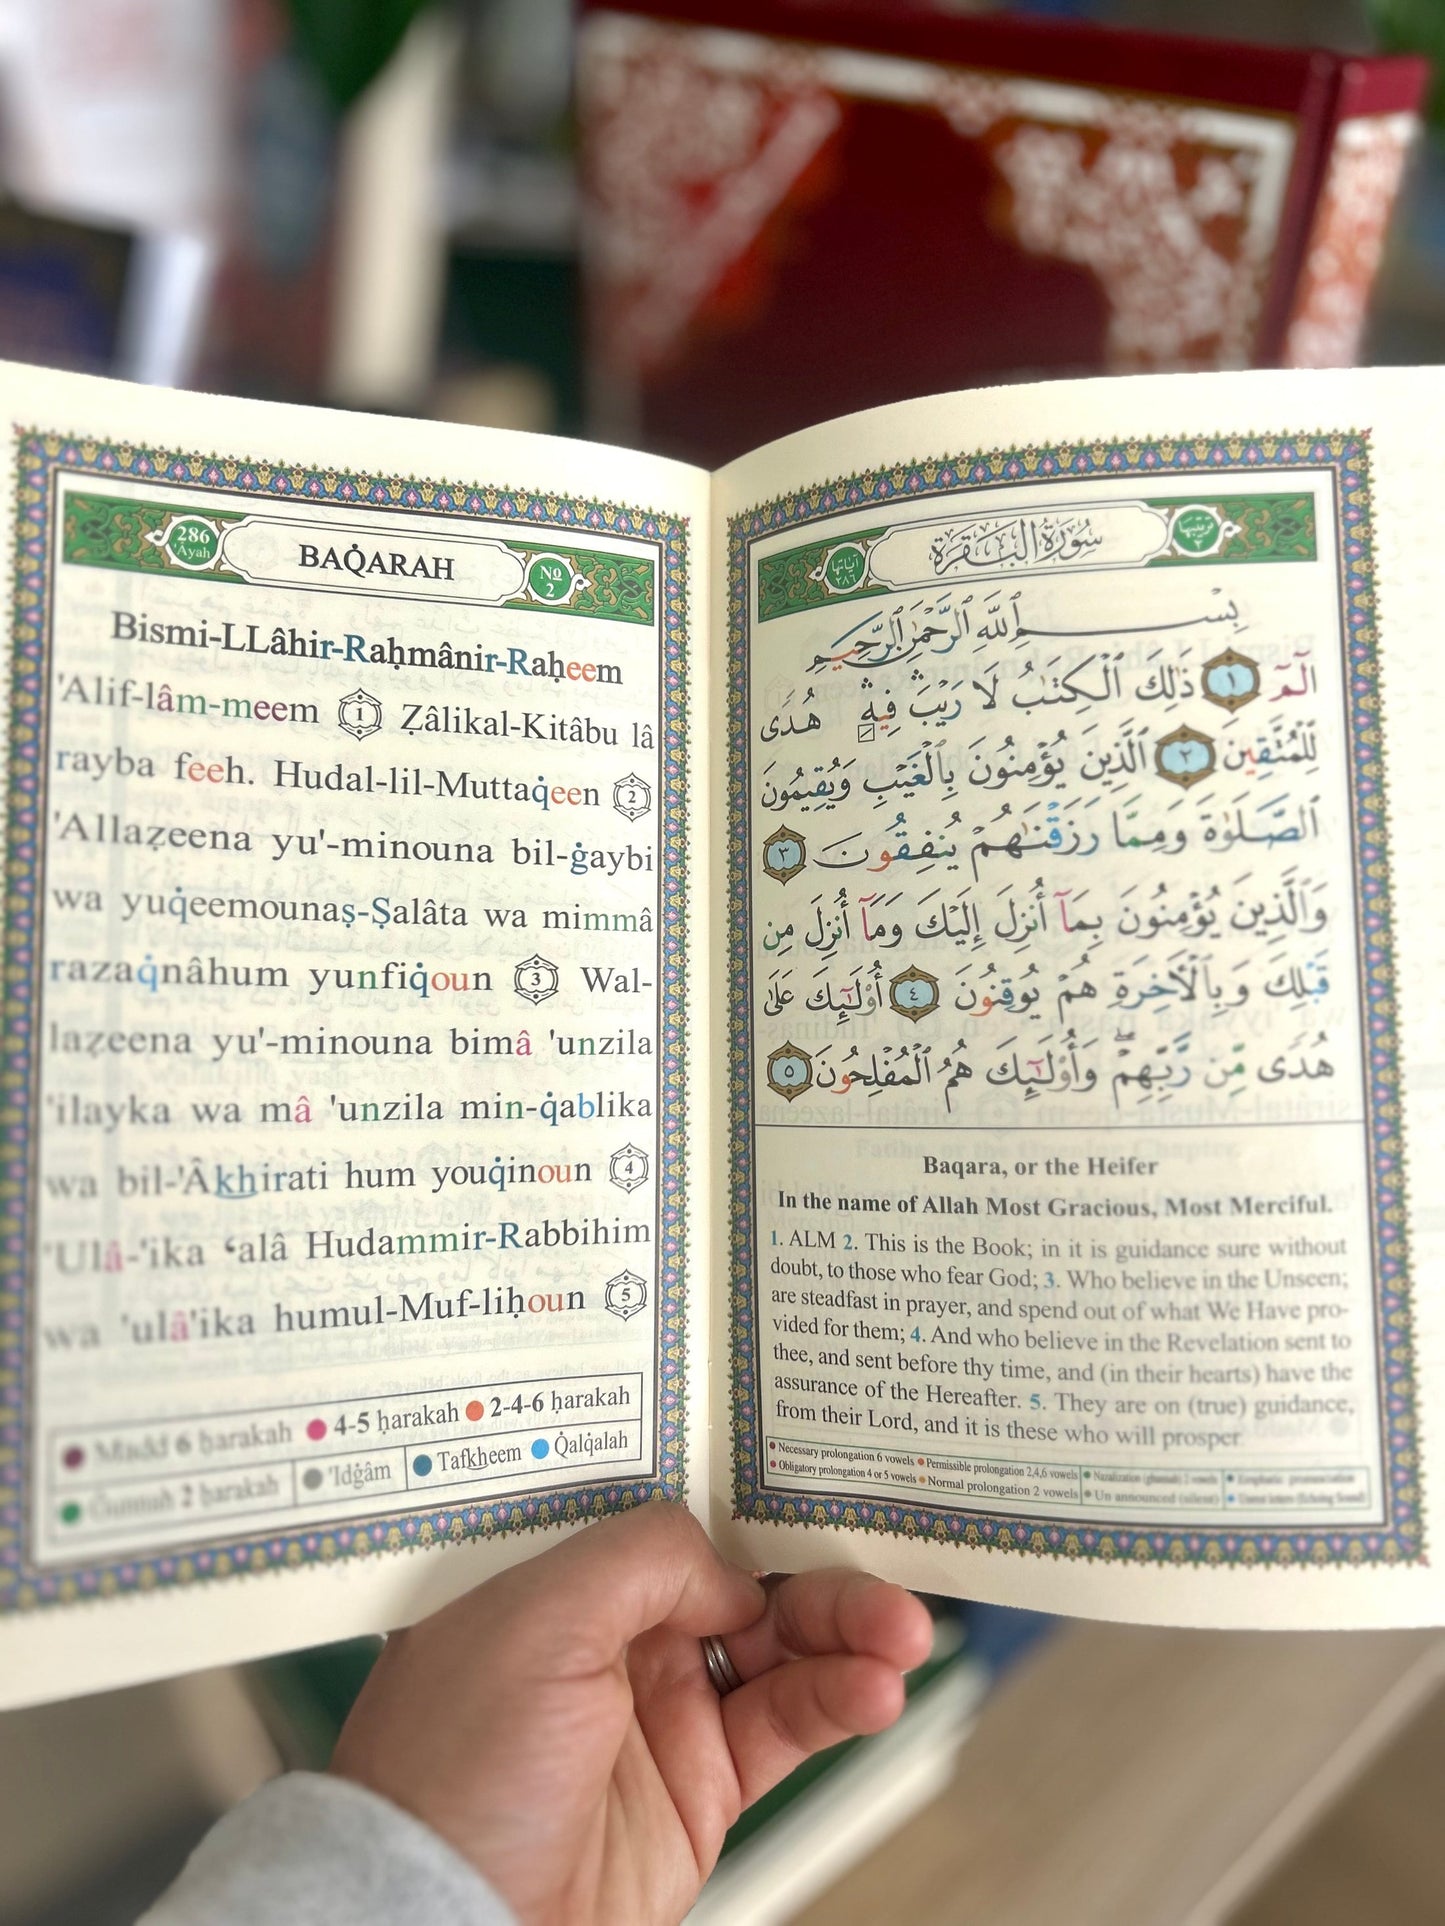 286
'Ayah
BAQ̇ARAH
No
2
Bismi-LLâhir-Raḥmânir-Raḥeem
'Alif-lâm-meem 1 Ẓâlikal-Kitâbu lâ
rayba feeh. Hudal-lil-Muttaq̇een 2
'Allaẓeena yu'-minouna bil-ġaybi
wa yuq̇eemounaṣ-Ṣalâta wa mimmâ
razaq̇nâhum yunfiq̇oun 3 Wal-
laẓeena yu'-minouna bimâ 'unzila
'ilayka wa mâ 'unzila min-q̇ablika
wa bil-'Âkhirati hum youq̇inoun 4
'Ulâ-'ika ‘alâ Hudammir-Rabbihim
wa 'ulâ'ika humul-Muf-liḥoun 5
Madd 6 ḥarakah 4-5 ḥarakah 2-4-6 ḥarakah
Ġunnah 2 ḥarakah 'Idġâm Tafkheem Q̇alq̇alah
ترتيبها
٢
سُورَةُ البَقَرَة
آياتها
٢٨٦
بِسْمِ ٱللَّهِ ٱلرَّحْمَٰنِ ٱلرَّحِيمِ
الٓمٓ ١ ذَٰلِكَ ٱلْكِتَٰبُ لَا رَيْبَ ۛ فِيهِ ۛ هُدًى
لِّلْمُتَّقِينَ ٢ ٱلَّذِينَ يُؤْمِنُونَ بِٱلْغَيْبِ وَيُقِيمُونَ
ٱلصَّلَوٰةَ وَمِمَّا رَزَقْنَٰهُمْ يُنفِقُونَ ٣
وَٱلَّذِينَ يُؤْمِنُونَ بِمَآ أُنزِلَ إِلَيْكَ وَمَآ أُنزِلَ مِن
قَبْلِكَ وَبِٱلْأَخِرَةِ هُمْ يُوقِنُونَ ٤ أُو۟لَٰٓئِكَ عَلَىٰ
هُدًى مِّن رَّبِّهِمْ ۖ وَأُو۟لَٰٓئِكَ هُمُ ٱلْمُفْلِحُونَ ٥
Baqara, or the Heifer
In the name of Allah Most Gracious, Most Merciful.
1. ALM 2. This is the Book; in it is guidance sure without
doubt, to those who fear God; 3. Who believe in the Unseen;
are steadfast in prayer, and spend out of what We Have pro-
vided for them; 4. And who believe in the Revelation sent to
thee, and sent before thy time, and (in their hearts) have the
assurance of the Hereafter. 5. They are on (true) guidance,
from their Lord, and it is these who will prosper
Necessary prolongation 6 vowels Permissible prolongation 2,4,6 vowels Nazalization (ghunnah) 2 vowels Emphatic pronunciation
Obligatory prolongation 4 or 5 vowels Normal prolongation 2 vowels Un announced (silent)